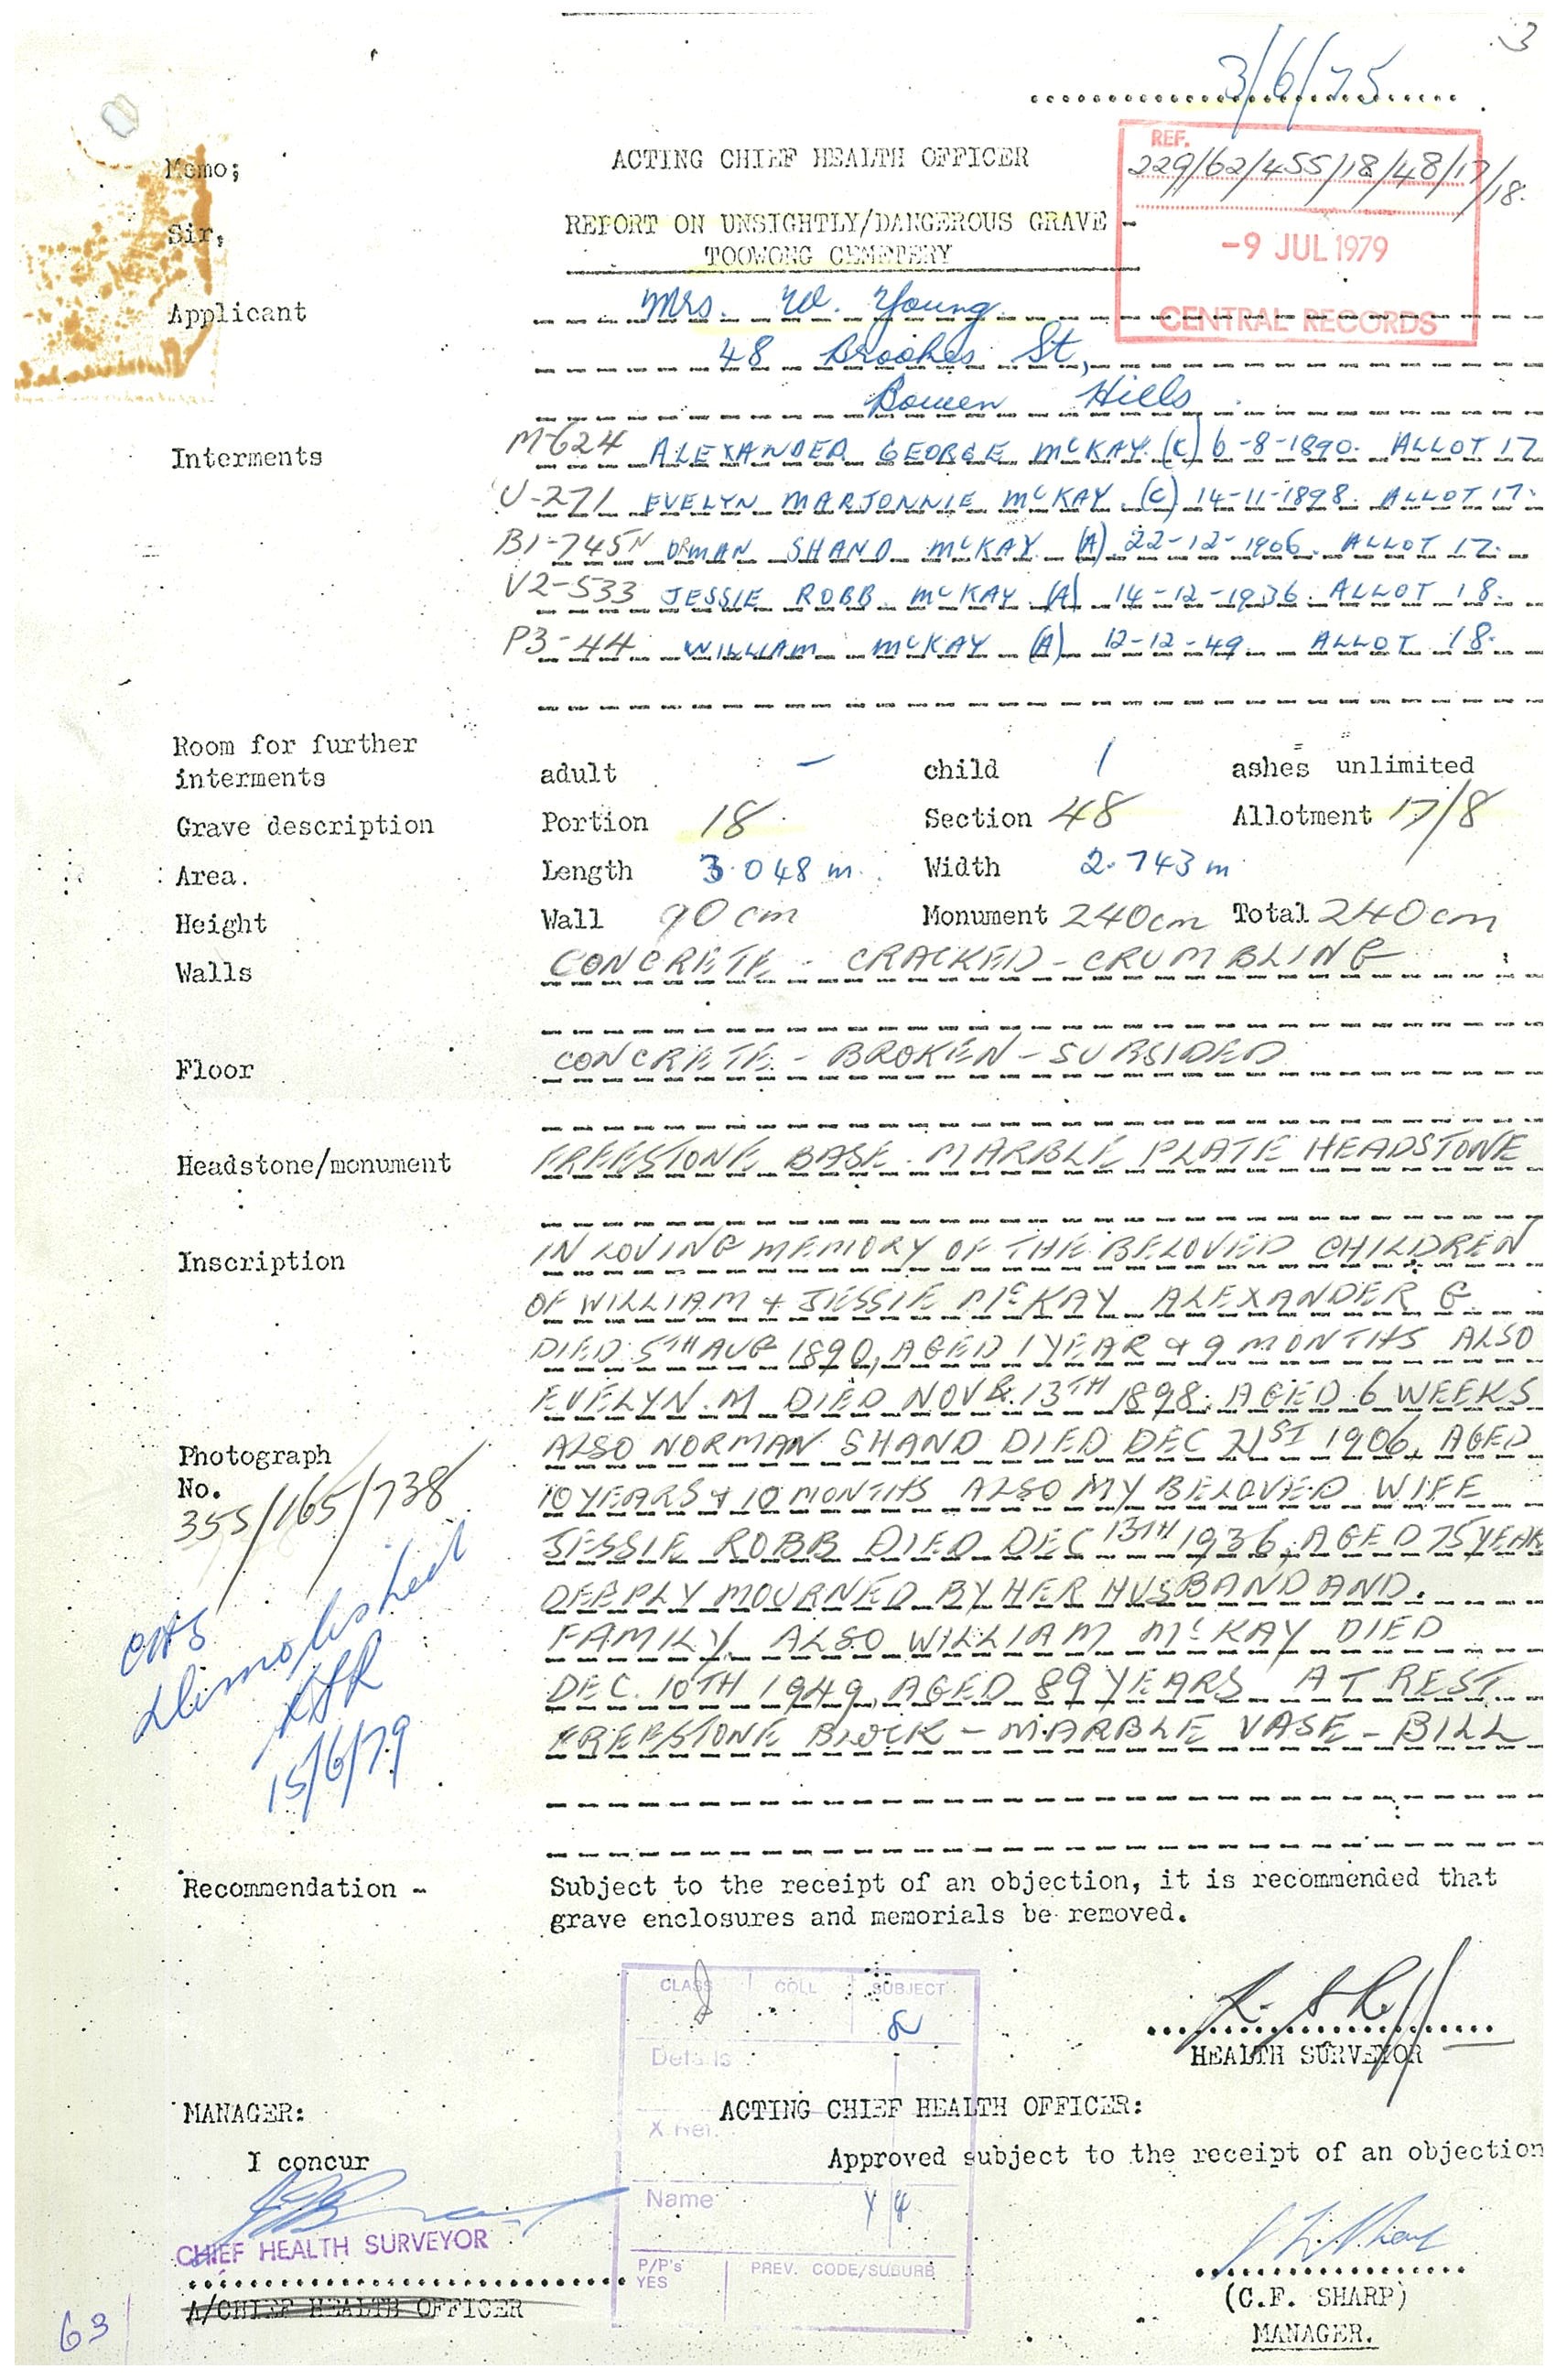 3
3/6/75
Memo;
ACTING CHIEF HEALTH OFFICER
REF.
229/62/455/18/48/17/18.
-9 JUL 1979
CENTRAL RECORDS
Sir,
REPORT ON UNSIGHTLY/DANGEROUS GRAVE -
TOOWONG CEMETERY
Applicant Mrs. W. Young
48 Brookes St,
Bowen Hills
Interments M-624 ALEXANDER GEORGE McKAY. (C) 6-8-1890. ALLOT 17
U-271 EVELYN MARJONNIE McKAY (C) 14-11-1898. ALLOT 17.
B1-745 NORMAN SHAND McKAY (A) 22-12-1906. ALLOT 17.
V2-533 JESSIE ROBB McKAY (A) 14-12-1936. ALLOT 18.
P3-44 WILLIAM McKAY (A) 12-12-49 ALLOT 18.
Room for further
interments adult - child 1 ashes unlimited
Grave description Portion 18 Section 48 Allotment 17/8
Area. Length 3.048 m. Width 2.743 m
Height Wall 90 cm Monument 240 cm Total 240 cm
Walls CONCRETE - CRACKED - CRUMBLING
Floor CONCRETE - BROKEN - SUBSIDED
Headstone/monument FREESTONE BASE. MARBLE PLATE HEADSTONE
Inscription IN LOVING MEMORY OF THE BELOVED CHILDREN
OF WILLIAM & JESSIE McKAY ALEXANDER G
DIED 5TH AUG 1890, AGED 1 YEAR & 9 MONTHS ALSO
EVELYN. M DIED NOVR. 13TH 1898. AGED 6 WEEKS
Photograph ALSO NORMAN SHAND DIED DEC 21ST 1906, AGED
No. 10 YEARS & 10 MONTHS ALSO MY BELOVED WIFE
355/165/738
JESSIE ROBB DIED DEC 13TH 1936, AGED 75 YEAR
DEEPLY MOURNED BY HER HUSBAND AND.
FAMILY. ALSO WILLIAM McKAY DIED
DEC. 10TH 1949, AGED 89 YEARS AT REST
FREESTONE BLOCK - MARBLE VASE - BILL
demolished
15/6/79
Recommendation - Subject to the receipt of an objection, it is recommended that
grave enclosures and memorials be removed.
CLASS COLL SUBJECT
Details
X Ref.
Name
P/P's
YES
PREV. CODE/SUBURB
HEALTH SURVEYOR
MANAGER: ACTING CHIEF HEALTH OFFICER:
I concur Approved subject to the receipt of an objection
CHIEF HEALTH SURVEYOR
A/CHIEF HEALTH OFFICER
(C.F. SHARP)
MANAGER.
63